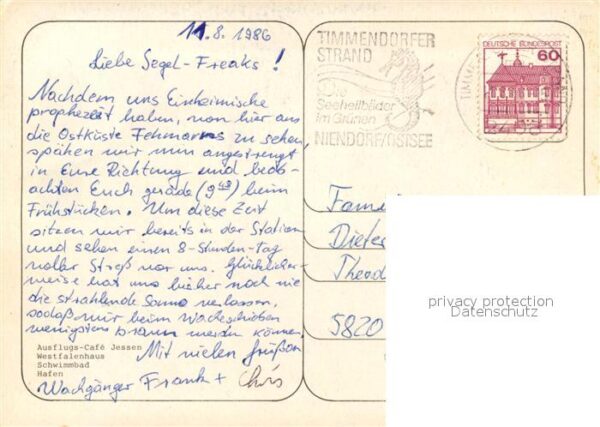 11.8.1986
Liebe Segel-Freaks!
Nachdem uns Einheimische
prophezeit haben, von hier aus
die Ostküste Fehmarns zu sehen,
spähen wir nun angestrengt
in Eure Richtung und beob-
achten Euch gerade (9⁴³) beim
Frühstücken. Um diese Zeit
sitzen wir bereits in der Station
und sehen einen 8-Stunden-Tag
voller Streß vor uns. Glücklicher-
weise hat uns bisher noch nie
die strahlende Sonne verlassen,
sodaß wir beim Wacheschieben
wenigstens braun werden können.
Mit vielen Grüßen
Wachgänger Frank + Chris
Ausflugs-Café Jessen
Westfalenhaus
Schwimmbad
Hafen
TIMMENDORFER
STRAND
Die
Seeheilbäder
im Grünen
NIENDORF/OSTSEE
DEUTSCHE BUNDESPOST
60
Fam
Dieter
Theod
5820
privacy protection
Datenschutz